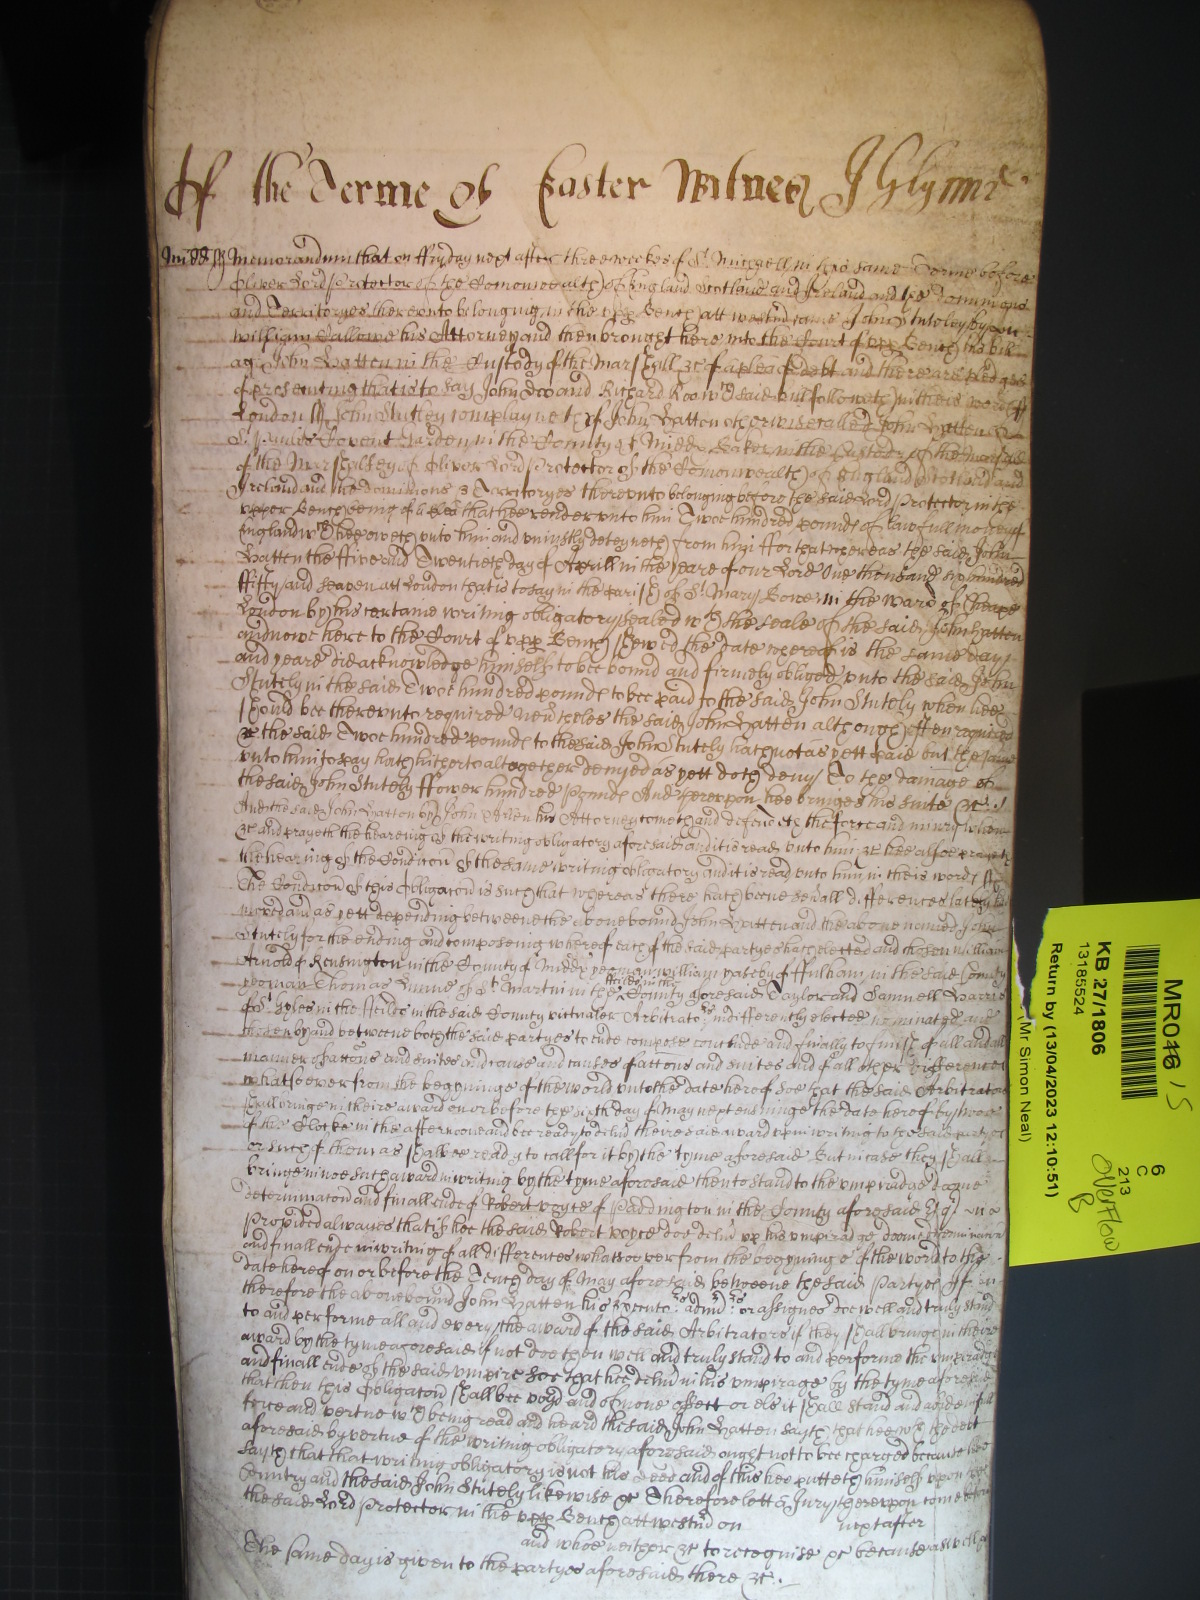 Of the Terme of Easter Witnes J Glynne
Midd ss Memorandum that on ffryday next after three weekes of St. Michaell in this same Terme before
Oliver Lord Protector of the Comonwealth of England Scotland and Ireland and the Dominions
and Territoryes thereunto belonging in the upp Bench att westm came John Stutely by
William Hallowe his Attorney and then brought here into the Court of upp Bench his bill
ag John Hatten in the Custody of the Marshall &c of a plea of debt and there are pledges
of presenting that is to say John Doo and Richard Roo wch said bill followeth in theis words ss
London ss John Stutley complayneth of John Hatten otherwise called John Hatten of
St. Paules Covent Garden in the County of Midd Baker in the Custody of the Marshall
of the Marshalsey of Oliver Lord Protector of the Comonwealth of England Scotland and
Ireland and the dominions & Territoryes thereunto belonging before the said Lord Protector in the
upper Bench being of a plea that hee render unto him Twoe hundred pounds of lawfull money of
England wch hee oweth unto him and uniustly deteyneth from him ffor that whereas the said John
Hatten the ffive and Twentieth day of Aprill in the yeare of our Lord One thousand six hundred
ffifty and seaven att London that is to say in the parish of St. Mary Bowe in the ward of Cheape
London by his certaine writing obligatory sealed wth the seale of the said John Hatten
and nowe here to the Court of upp Bench shewed the date whereof is the same day
and yeare did acknowledge himselfe to bee bound and firmely obliged unto the said John
Stutely in the said Twoe hundred pounds to bee paid to the said John Stutely when hee
should bee thereunto required Neutheles the said John Hatten although often required
the said Twoe hundred pounds to the said John Stutely hath not as yett paid but the same
unto him to pay hath hitherto altogether denyed as yett doth deny To the damage of
the said John Stutely ffower hundred Pounds And hereupon hee bringes his suite &c
And the said John Hatton by John Allen his Attorney cometh and defendeth the force and iniury when
&c and prayeth the heareing of the writing obligatory aforesaid and it is read unto him &c hee alsoe prayeth
the hearing of the Condicon of the same writing obligatory and it is read unto him in theis words ss
The Condicon of this Obligacon is such that whereas there hath beene seuall differences lately
moved and as yett depending betweene the abovebound John Hatten and the above named John
Stutely for the ending and composeing whereof each of the said partyes hath elected and chosen William
Arnold of Kensington in the County of Midd yeoman William yateby of ffulham in the said County
yeoman Thomas of St Martin in the ffeilds in the County aforesaid Taylor and Samuell Harris
of St. Gyles in the ffeilds in the said County victualer Arbitratrs indifferently elected nominated and
chosen by and betweene both the said partyes to ende compose conclude and finally to finish of all and all
manner of accons and suites and cause and causes of accons and suites and of all other differences
whatsoever from the begginge of the world unto the date hereof soe that the said Arbitrators
shall bringe in theire award on or before the sixth day of May next ensuinge the date hereof by twoe
of the Clocke in the afternoone and bee ready to delivr theire said award upp in writing to the said partyes
or such of them as shall bee ready to call for it by the tyme aforesaid But in case they shall
bringe in noe such award in writing by the tyme aforesaid then to stand to the umpiradge doome
determinacon and finall ende of Robert voyce of Paddington in the County aforesaid
Provided alwayes that if hee the said Robert voyce doe delivr upp his umpiradge doome determinacon
and finall ende in writing of all differences whatsoever from the begginge of the world to the
date hereof on or before the Tenth day of May aforesaid betweene the said Partyes If
therefore the abovebound John Hatten his Executors admrs or assignes doe well and truly stand
to and performe all and every the award of the said Arbitrators if they shall bringe in theire
award by the tyme aforesaid if not doe then well and truly stand to and performe the umpiradge
and finall ende of the said umpire soe that hee delivr in his umpirage by the tyme aforesaid
that then this Obligacon shall bee voyd and of none effect or els it shall stand and abide in full
force and vertue wch being read and heard the said John Hatten sayth that hee wth the debt
aforesaid by vertue of the writing obligatory aforesaid ought not to bee charged because hee
sayth that that writing obligatory is not his deed and of this hee putteth himselfe upon the
Country and the said John Stutely likewise &c Therefore lett a Jury thereupon come before
the said Lord Protector in the upp Bench att westm on next after
and whoe neither &c to recognise &c because aswell
The same day is given to the partyes aforesaid there &c
MR046 / 5
KB 27/1806
13185524
Return by (13/04/2023 12:10:51)
(Mr Simon Neal)
6
C
213
Overflow
B